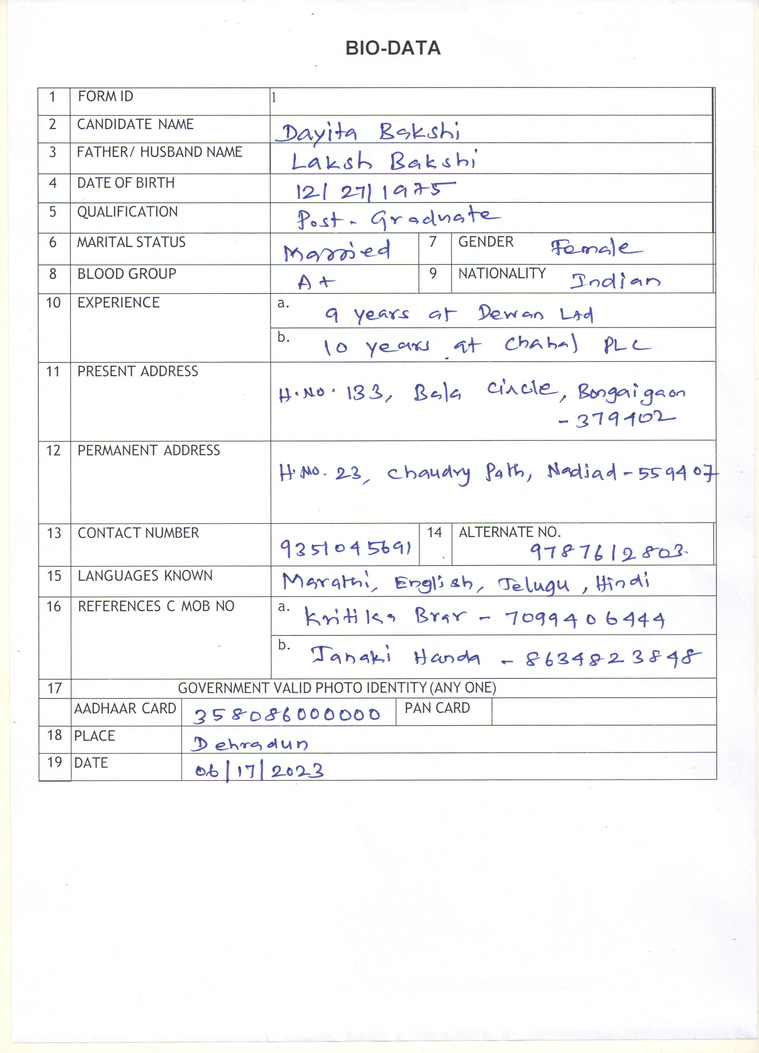 BIO-DATA
1 FORM ID 1
2 CANDIDATE NAME Dayita Bakshi
3 FATHER/ HUSBAND NAME Laksh Bakshi
4 DATE OF BIRTH 12/27/1975
5 QUALIFICATION Post-Graduate
6 MARITAL STATUS Married 7 GENDER Female
8 BLOOD GROUP A+ 9 NATIONALITY Indian
10 EXPERIENCE a. 9 years at Dewan Ltd
b. 10 years at Chahal PLC
11 PRESENT ADDRESS H.NO. 133, Bala Circle, Bongaigaon
- 379402
12 PERMANENT ADDRESS H.NO. 23, Chaudry Path, Nadiad - 559407
13 CONTACT NUMBER 9351045691 14 ALTERNATE NO. 9787612803.
15 LANGUAGES KNOWN Marathi, English, Telugu, Hindi
16 REFERENCES C MOB NO a. Kritika Brar - 7099406444
b. Janaki Handa - 8634823848
17 GOVERNMENT VALID PHOTO IDENTITY (ANY ONE)
AADHAAR CARD 358086000000 PAN CARD
18 PLACE Dehradun
19 DATE 06/17/2023